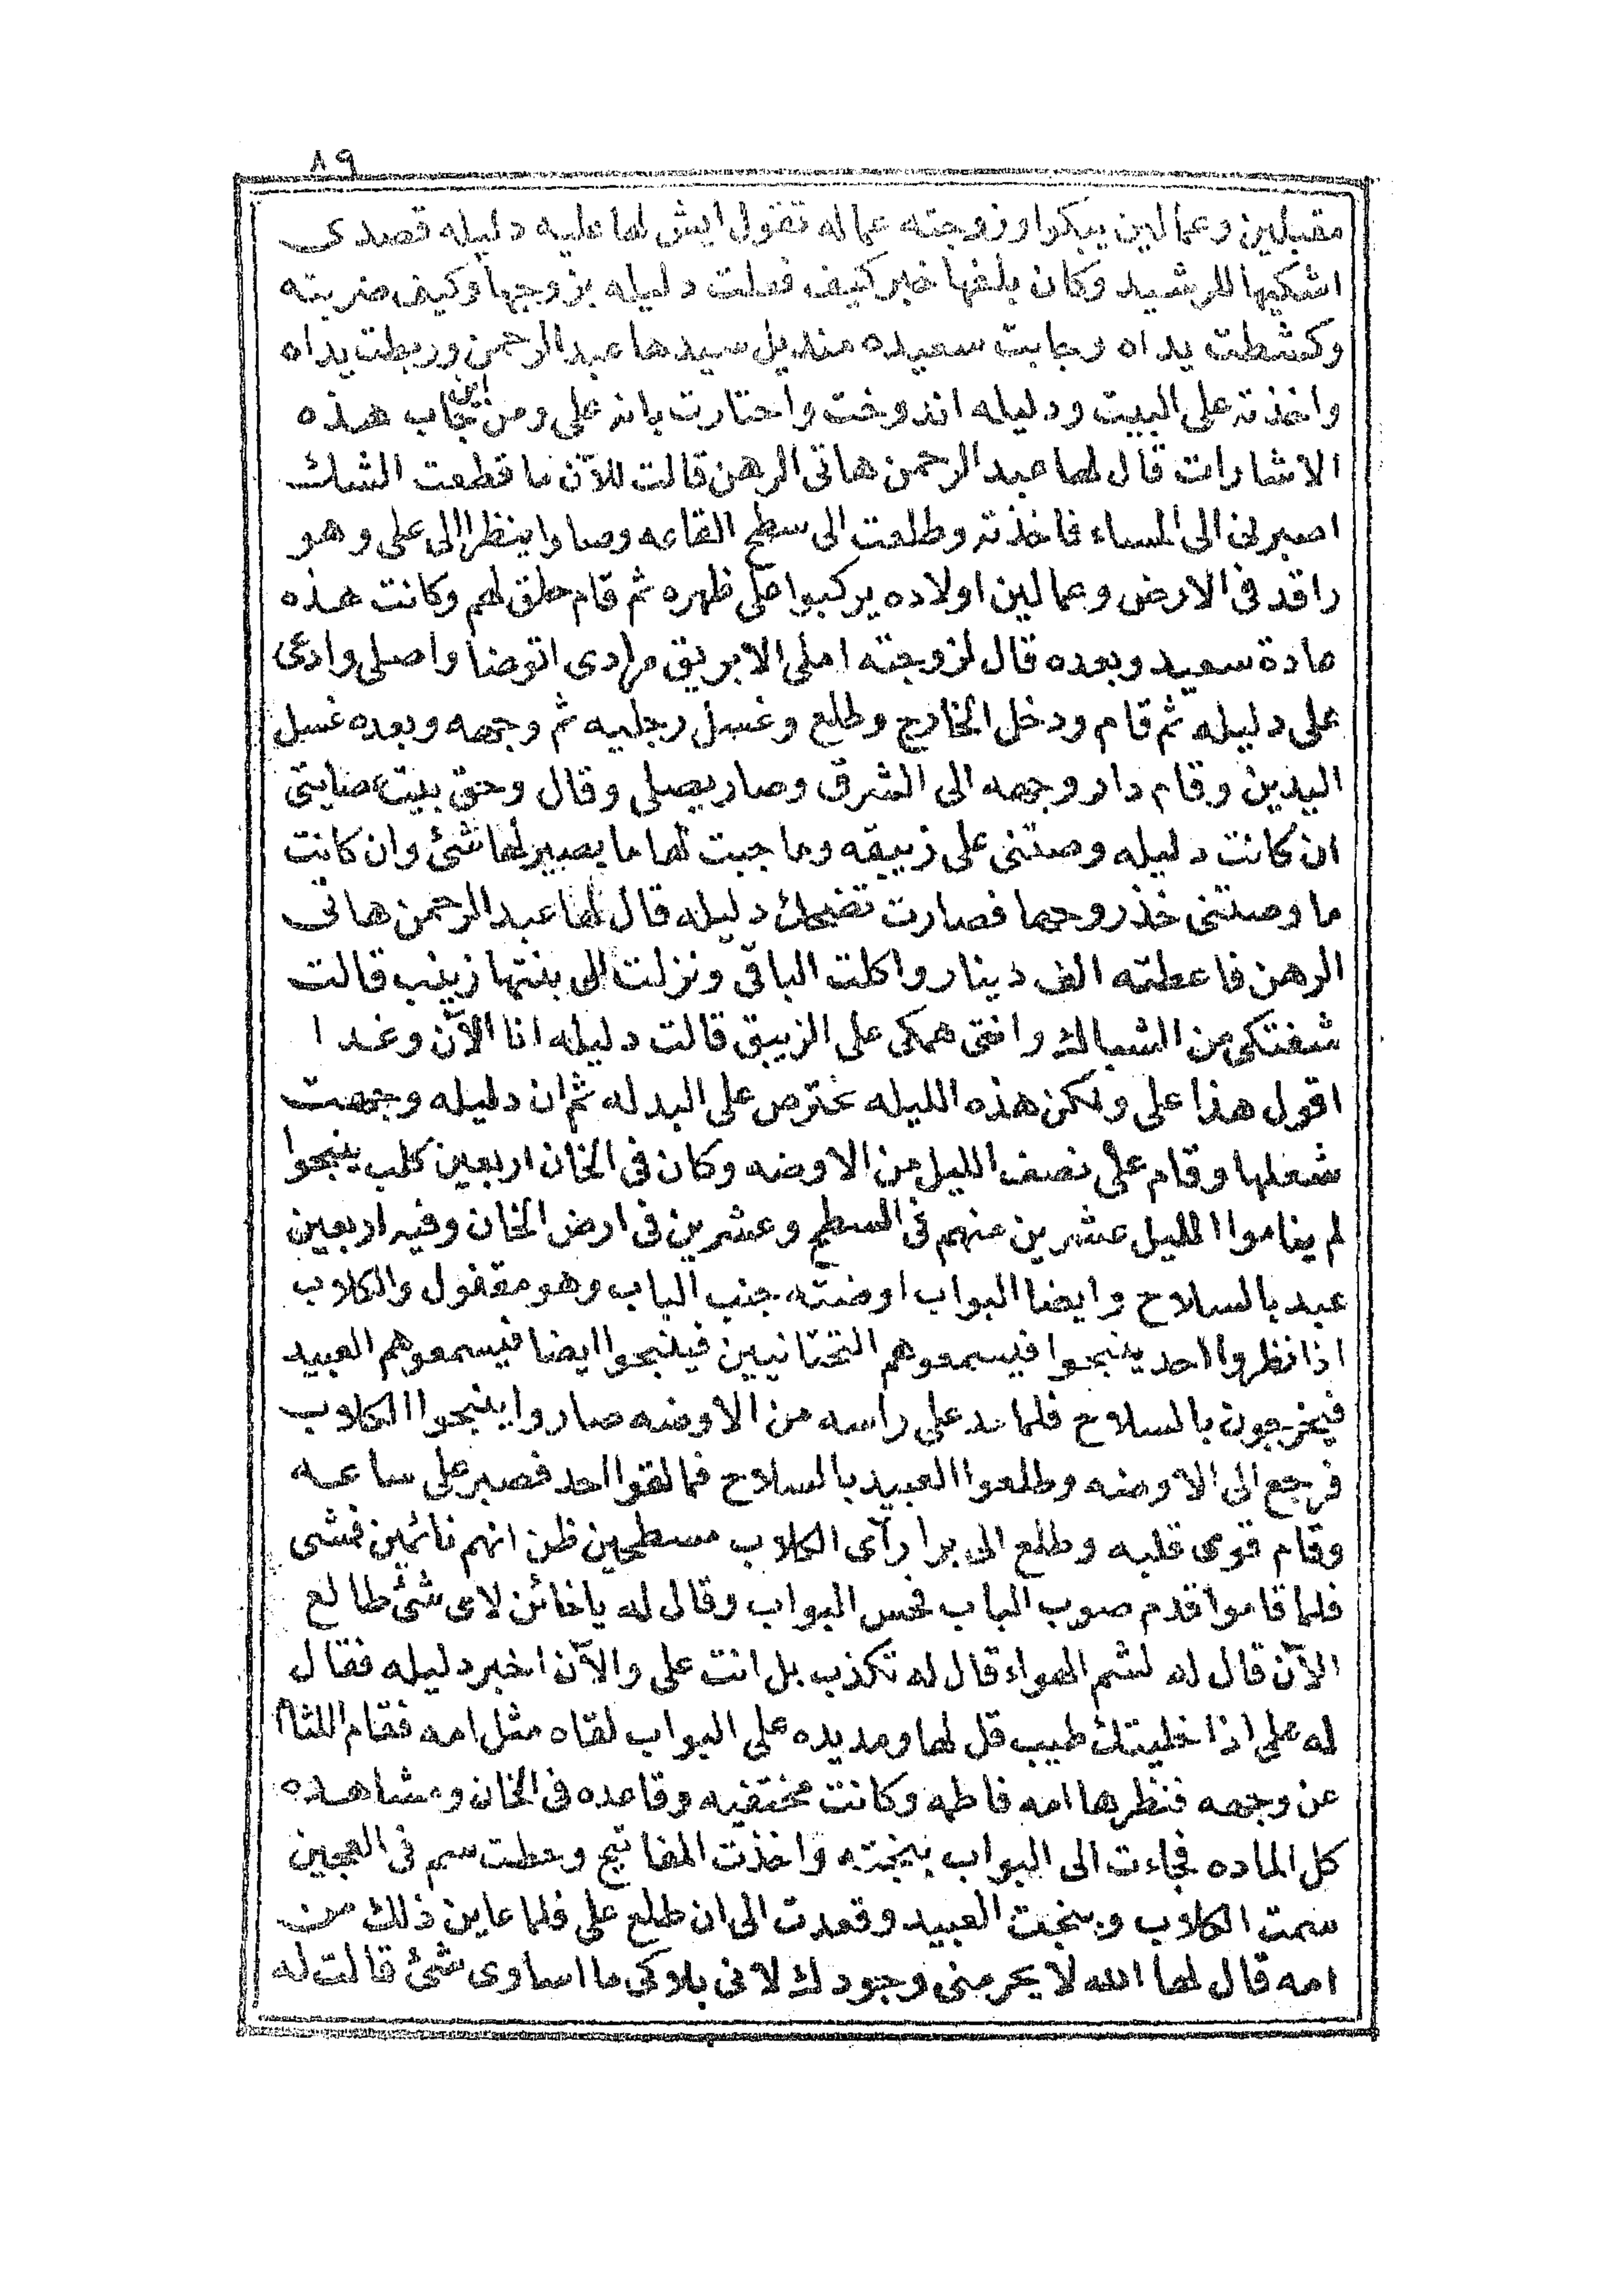 ٨٩
مقبلين وعمالين يبكوا وزوجته عماله تقول ايش لها عليه دليله قصدى
اشكيها للرشيد وكان بلغها خبر كيف فعلت دليله بزوجها وكيف ضربته
وكشطت يداه وجابت سعيده منديل سيدها عبد الرحمن وربطت يداه
واخذته على البيت ودليله اندوخت واحتارت بانه على ومن اين جاب هذه
الاشارات قال لها عبد الرحمن هاتى الرهن قالت للآن ما قطعت الشك
اصبر لى الى المساء فاخذته وطلعت الى سطح القاعه وصاروا ينظر الى على وهو
راقد فى الارض وعمالين اولاده يركبوا على ظهره ثم قام حلق لهم وكانت هذه
عادة سعيد وبعده قال لزوجته املى الابريق مرادى اتوضأ واصلى وادعى
على دليله ثم قام ودخل الخارج وطلع وغسل رجليه ثم وجهه وبعده غسل
اليدين وقام دار وجهه الى الشرق وصار يصلى وقال وحق بيت
ان كانت دليله وصتنى على زنبيقه وما جبت لها ما يصير لها شئ وان كانت
ما وصتنى خذ روحها فصارت تضحك دليله قال لها عبد الرحمن هاتى
الرهن فاعطته الف دينار واكلت الباقى ونزلت الى بنتها زينب قالت
شفتكى من الشباك وانتى همكى على الزيبق قالت دليله انا الآن وغدا
اقول هذا على ولكن هذه الليله نحترص على البدله ثم ان دليله وجهت
شغلها وقام على نصف الليل من الاوضه وكان فى الخان اربعين كلب ينبحوا
لم يناموا الليل عشرين منهم فى السطح وعشرين فى ارض الخان وفيه اربعين
عبد بالسلاح وايضا البواب اوضته جنب الباب وهو مقفول والكلاب
اذا نظروا احد ينبحوا فيسمعوهم التحتانيين فينبحوا ايضا فيسمعوهم العبيد
فيخرجون بالسلاح فلما مد على راسه من الاوضه صاروا ينبحوا الكلاب
فرجع الى الاوضه وطلعوا العبيد بالسلاح فما لقوا احد فصبر على ساعه
وقام قوى قلبه وطلع الى برا رآى الكلاب مسطحين ظن انهم نائمين فمشى
فلما قاموا قدم صوب الباب فحس البواب وقال له يا خائن لاى شئ طالع
الآن قال له لشم الهواء قال له تكذب بل انت على والآن اخبر دليله فقال
له على اذا خليتك طيب قل لها ومد يده على البواب لقاه مثل امه فقام اللثام
عن وجهه فنظرها امه فاطمه وكانت مختفيه وقاعده فى الخان ومشاهده
كل الماده فجاءت الى البواب بنجته واخذت المفاتيح وحطت سم فى العجين
سمت الكلاب وبنجت العبيد وقعدت الى ان طلع على فلما عاين ذلك من
امه قال لها الله لا يحرمنى وجودك لانى بلاوكى ما اساوى شئ قالت له